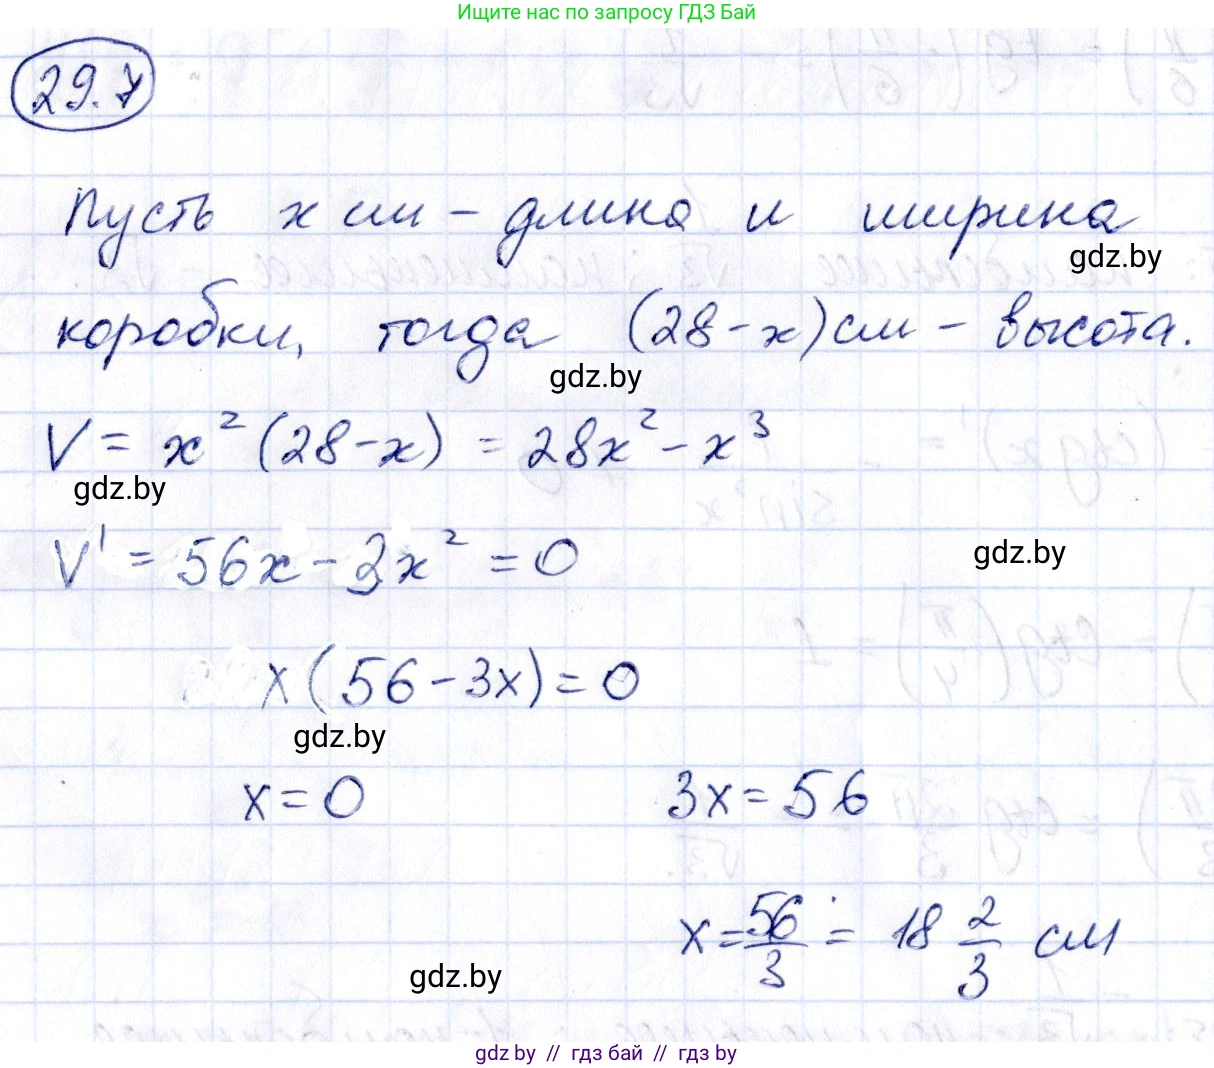 Ищите нас по запросу ГДЗ Бай
29.7
Пусть x см – длина и ширина
gdz.by
коробки, тогда (28-x) см – высота.
gdz.by
V = x² (28-x) = 28x² - x³
gdz.by
V' = 56x - 3x² = 0
gdz.by
x(56-3x) = 0
gdz.by
x = 0 3x = 56
x = 56/3 = 18 2/3 см
gdz.by
gdz by // гдз бай // гдз by